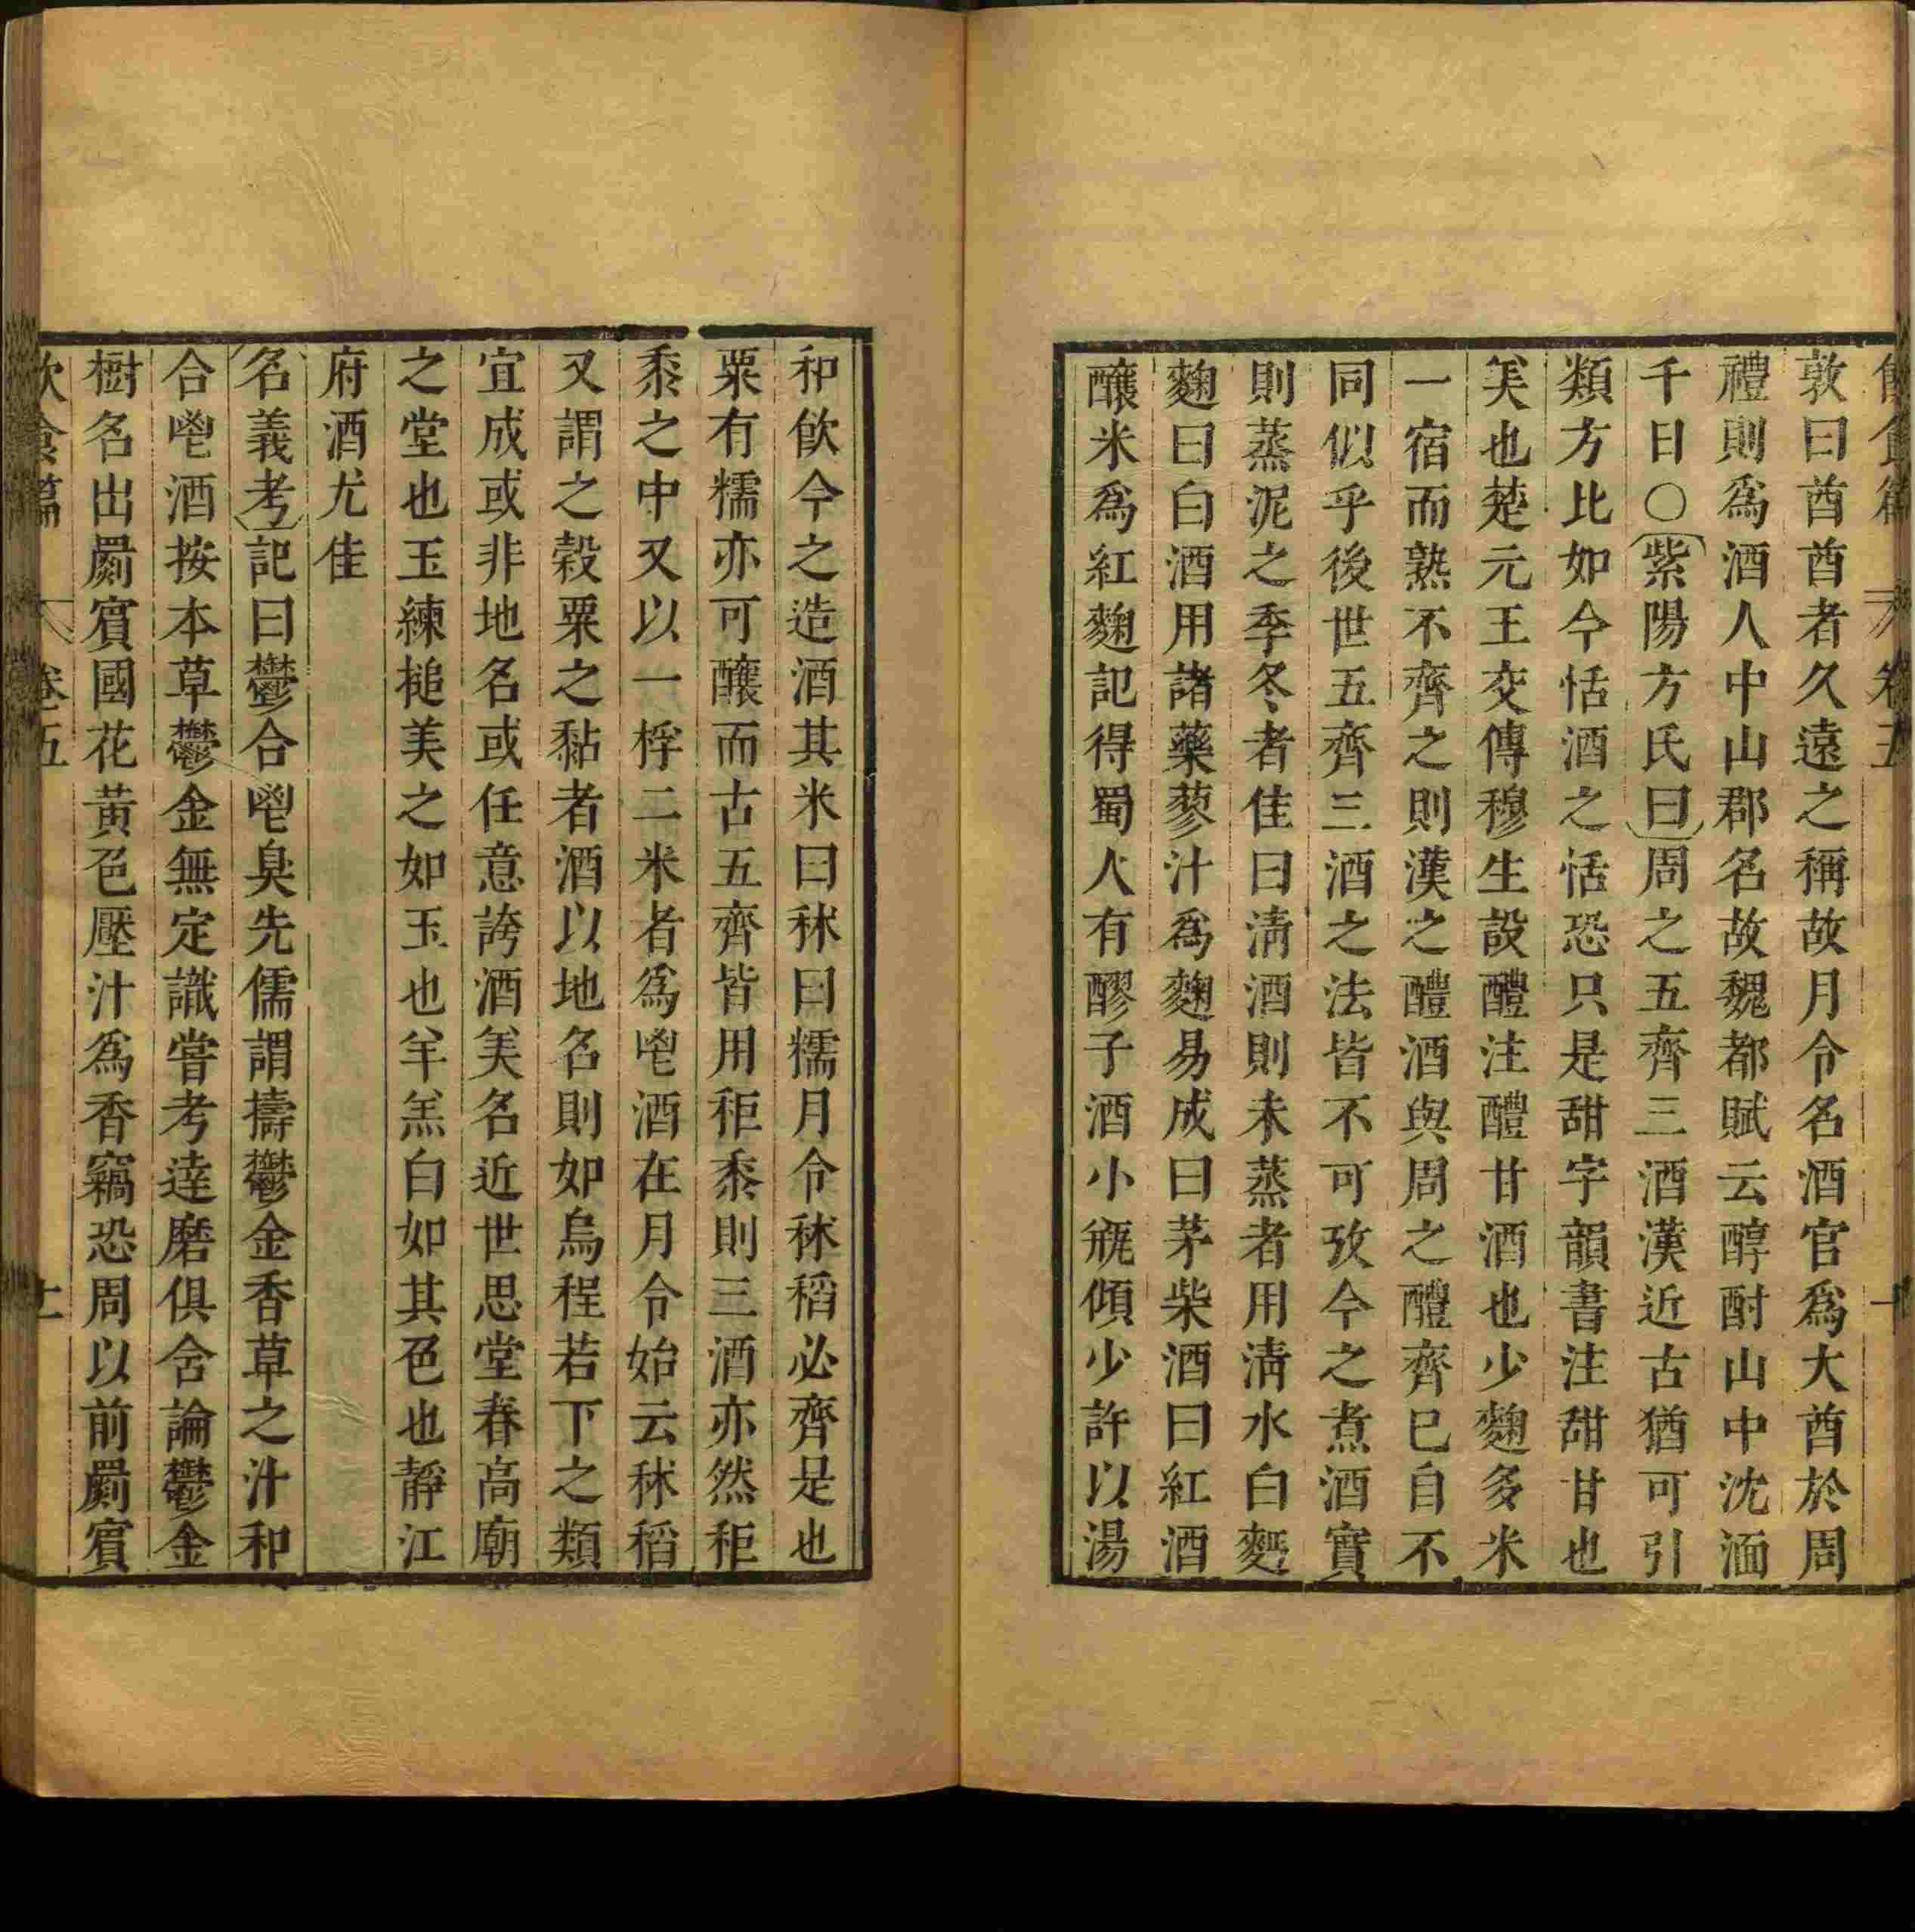 飲食篇 卷五 十
敦曰酋酋者久遠之稱故月令名酒官爲大酋於周
禮則爲酒人中山郡名故魏都賦云醇酎山中沈湎
千日○紫陽方氏曰周之五齊三酒漢近古猶可引
類方比如今恬酒之恬恐只是甜字韻書注甜甘也
美也楚元王交傳穆生設醴注醴甘酒也少麴多米
一宿而熟不齊之則漢之醴酒與周之醴齊已自不
同似乎後世五齊三酒之法皆不可攷今之煮酒實
則蒸泥之季冬者佳曰淸酒則未蒸者用淸水白麪
麴曰白酒用諸藥蓼汁爲麴易成曰茅柴酒曰紅酒
釀米爲紅麴記得蜀人有醪子酒小甁傾少許以湯
和飮今之造酒其米曰秫曰糯月令秫稻必齊是也
粟有糯亦可釀而古五齊皆用秬黍則三酒亦然秬
黍之中又以一稃二米者爲鬯酒在月令始云秫稻
又謂之穀粟之黏者酒以地名則如烏程若下之類
宜成或非地名或任意誇酒美名近世思堂春高廟
之堂也玉練槌美之如玉也羊羔白如其色也靜江
府酒尤佳
名義考記曰鬱合鬯臭先儒謂擣鬱金香草之汁和
合鬯酒按本草鬱金無定識嘗考達磨俱舍論鬱金
樹名出罽賓國花黃色壓汁爲香竊恐周以前罽賓
飲食篇 卷五 十一